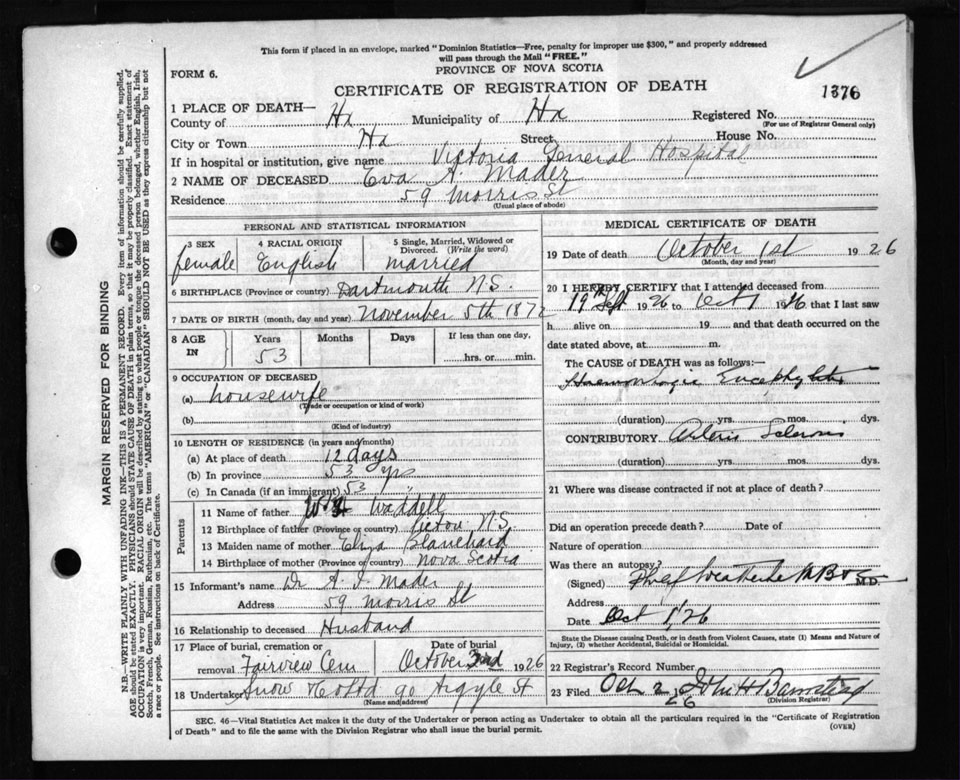 This form if placed in an envelope, marked "Dominion Statistics—Free, penalty for improper use $300," and properly addressed
will pass through the Mail "FREE."
PROVINCE OF NOVA SCOTIA
FORM 6.
CERTIFICATE OF REGISTRATION OF DEATH
1376
1 PLACE OF DEATH—
County of Hx Municipality of Hx Registered No.
(For use of Registrar General only)
City or Town Hx Street House No.
If in hospital or institution, give name Victoria General Hospital
2 NAME OF DECEASED Eva A. Mader
Residence 59 Morris St
(Usual place of abode)
MARGIN RESERVED FOR BINDING
N.B.—WRITE PLAINLY WITH UNFADING INK—THIS IS A PERMANENT RECORD. Every item of information should be carefully supplied.
AGE should be stated EXACTLY. PHYSICIANS should STATE CAUSE OF DEATH in plain terms, so that it may be properly classified. Exact statement of
OCCUPATION is very important. RACIAL ORIGIN will be described by stating to what people or tongue the deceased person belonged, whether English, Irish,
Scotch, French, German, Russian, Ruthenian, etc. The terms "AMERICAN" or "CANADIAN" SHOULD NOT BE USED as they express citizenship but not
a race or people. See instructions on back of Certificate.
PERSONAL AND STATISTICAL INFORMATION
3 SEX
female
4 RACIAL ORIGIN
English
5 Single, Married, Widowed or
Divorced. (Write the word)
married
6 BIRTHPLACE (Province or country) Dartmouth N.S.
7 DATE OF BIRTH (month, day and year) November 5th 1872
8 AGE IN
Years
53
Months
Days
If less than one day,
hrs. or min.
9 OCCUPATION OF DECEASED
(a) housewife
(Trade or occupation or kind of work)
(b)
(Kind of industry)
10 LENGTH OF RESIDENCE (in years and months)
(a) At place of death 12 days
(b) In province 53 yrs
(c) In Canada (if an immigrant) 53
Parents
11 Name of father Waddell
12 Birthplace of father (Province or country) Pictou N.S.
13 Maiden name of mother Eliza Blanchard
14 Birthplace of mother (Province or country) Nova Scotia
15 Informant's name Dr A. I. Mader
Address 59 Morris St
16 Relationship to deceased Husband
17 Place of burial, cremation or
removal Fairview Cem
Date of burial
October 2nd 1926
18 Undertaker Snow & Co Ltd 90 Argyle St
(Name and address)
MEDICAL CERTIFICATE OF DEATH
19 Date of death October 1st 1926
(Month, day and year)
20 I HEREBY CERTIFY that I attended deceased from
19th Sept 1926 to Oct 1 1926 that I last saw
h alive on 19 and that death occurred on the
date stated above, at m.
The CAUSE of DEATH was as follows:—
Haemorrhagic Encephalitis
(duration) yrs. mos. dys.
CONTRIBUTORY Arterio Sclerosis
(duration) yrs. mos. dys.
21 Where was disease contracted if not at place of death?
Did an operation precede death? Date of
Nature of operation
Was there an autopsy?
(Signed) M.D.
Address
Date Oct 1/26
State the Disease causing Death, or in death from Violent Causes, state (1) Means and Nature of
Injury, (2) whether Accidental, Suicidal or Homicidal.
22 Registrar's Record Number
23 Filed Oct 2 1926 John H Barnstead
(Division Registrar)
SEC. 46—Vital Statistics Act makes it the duty of the Undertaker or person acting as Undertaker to obtain all the particulars required in the "Certificate of Registration
of Death" and to file the same with the Division Registrar who shall issue the burial permit.
(OVER)